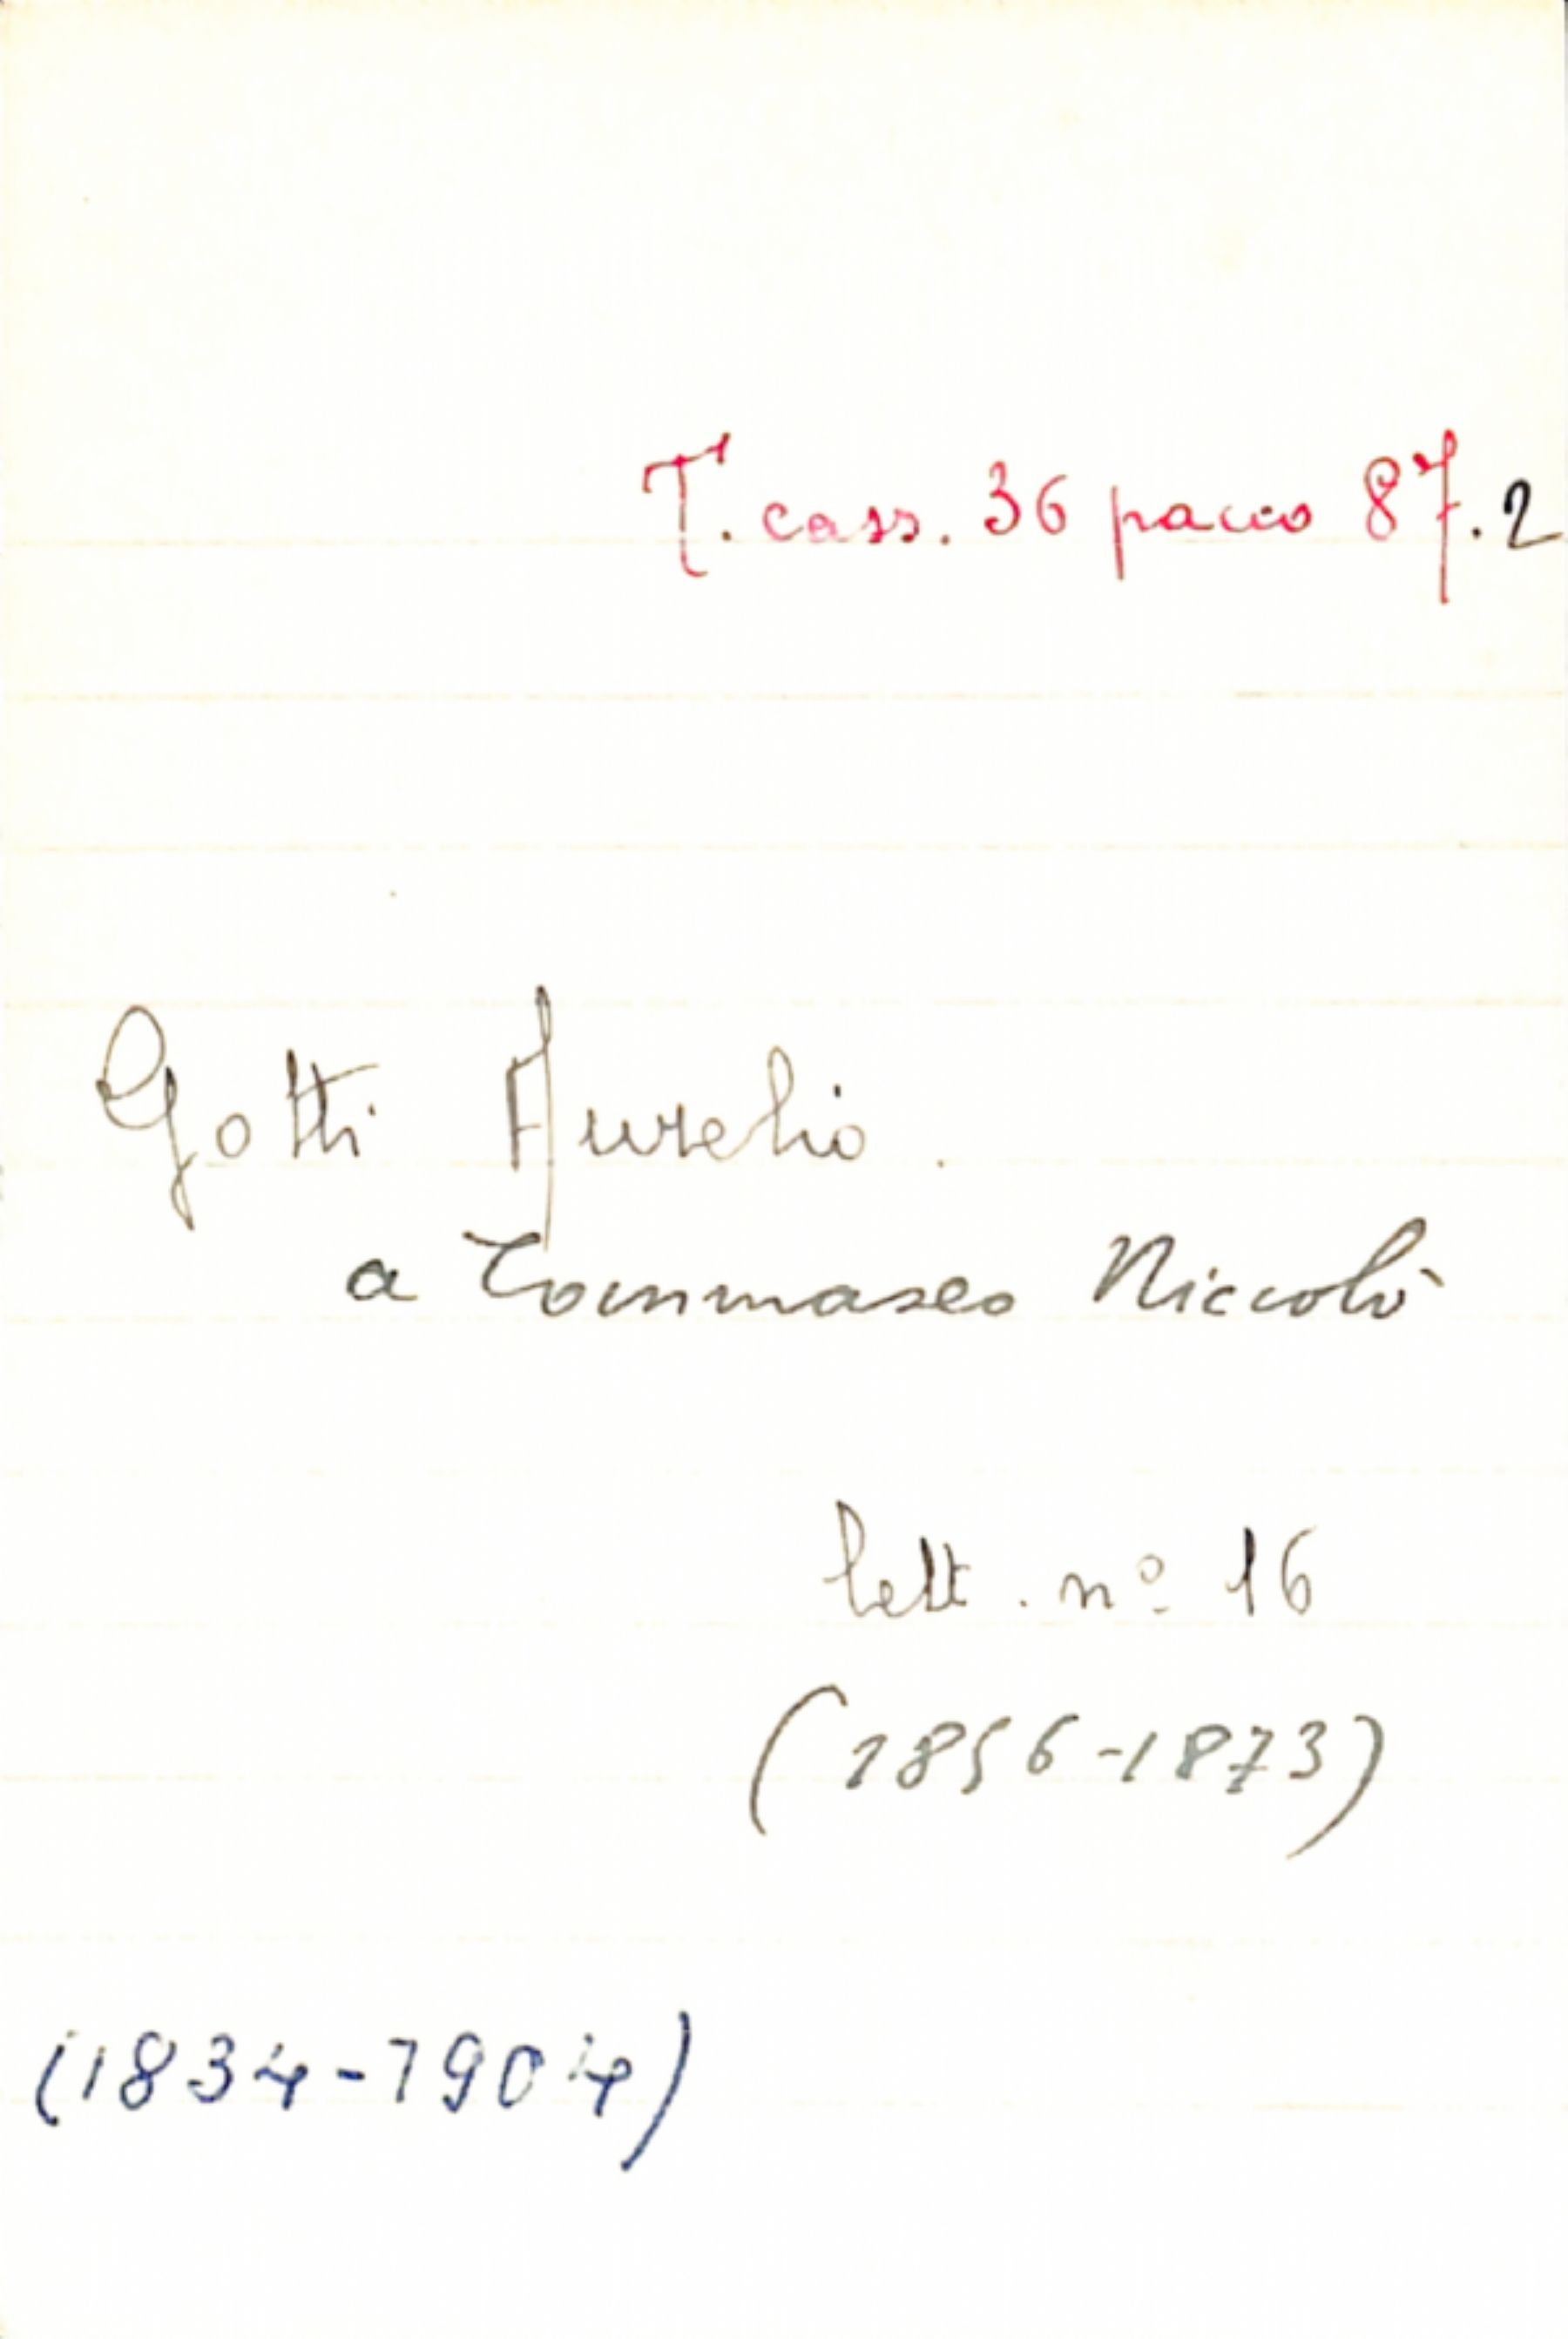 T. cass. 36 pacco 87.2
Gotti Aurelio.
a Tommaseo Niccolò
lett. nº 16
(1856-1873)
(1834-1904)